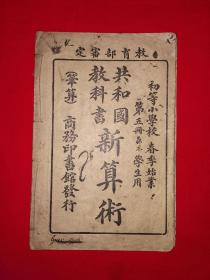 教育部審定
初等小學校 春季始業
第五冊 學生用
共和國
教科書
新算術
(筆算)
商務印書館發行